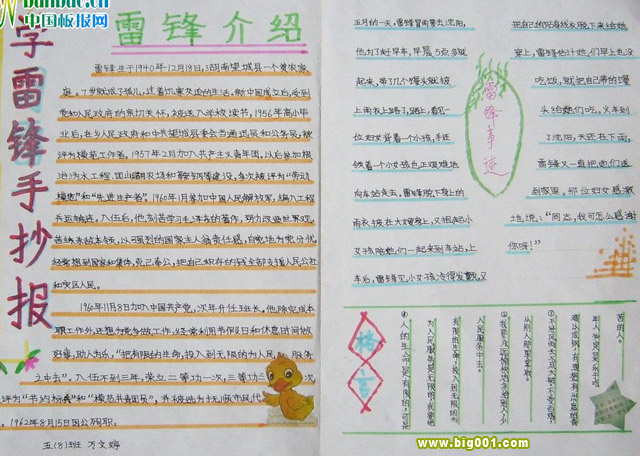 www.bunbuc.cn
中国板报网
学雷锋手抄报
雷锋介绍
雷锋生于1940年12月18日,湖南望城县一个贫农家
庭。7岁就成了孤儿,过着饥寒交迫的生活。新中国成立后,受到
党和人民政府的亲切关怀,被送入学校读书。1956年高小毕
业后,在乡人民政府和中共望城县委会当通讯员和公务员,被
评为模范工作者。1957年2月加入共产主义青年团。以后参加根
治沩水工程、团山湖农场和鞍钢的建设,多次被评为“劳动
模范”和“先进生产者”。1960年1月参加中国人民解放军,编入工程
兵运输连。入伍后,他刻苦学习毛泽东的著作,努力改造世界观,
苦练杀敌本领,以强烈的国家主人翁责任感,自觉地为党分忧。
经常想到国家和集体,克己奉公,把自己积存的钱全部支援人民公社
和灾区人民。
1960年11月8日加入中国共产党,次年升任班长。他除完成本
职工作外,还想为党多做工作,经常利用节假日和休息时间做
好事,助人为乐,“把有限的生命,投入到无限的为人民服务
之中去”。入伍不到三年,荣立二等功一次,三等功 次,
评为“节约标兵”和“模范共青团员”,并被选为抚顺市人民代
1962年8月15日因公殉职。
五(8)班 万文婷
五月的一天,雷锋冒雨要去沈阳,
他为了赶早车,早晨5点多就
起来,带了几个馒头就披
上雨衣上路了,路上,看见一
位妇女背着一个小孩,手还
领着一个小女孩也正艰难地
向车站走去。雷锋脱下身上的
雨衣披在大嫂身上,又抱起小
女孩陪她们一起来到车站,上
车后,雷锋见小女孩冷得发颤,又
雷锋事迹
把自己的贴身线衣脱下来给她
穿上,雷锋估计她们早上也没
吃饭,就把自己带的馒
头给她们吃。火车到
了沈阳,天还在下雨,
雷锋又一直把她们送
到家里。那位妇女感激
地说:“同志,我可怎么感谢
你呀!”
格言
①人的生命是有限的,可是
为人民服务是无限的,我要把
有限的生命,投入到无限的为
人民服务中去。
②我要永远愉快地多给别人,少
从别人那里拿取。
www.big001.com